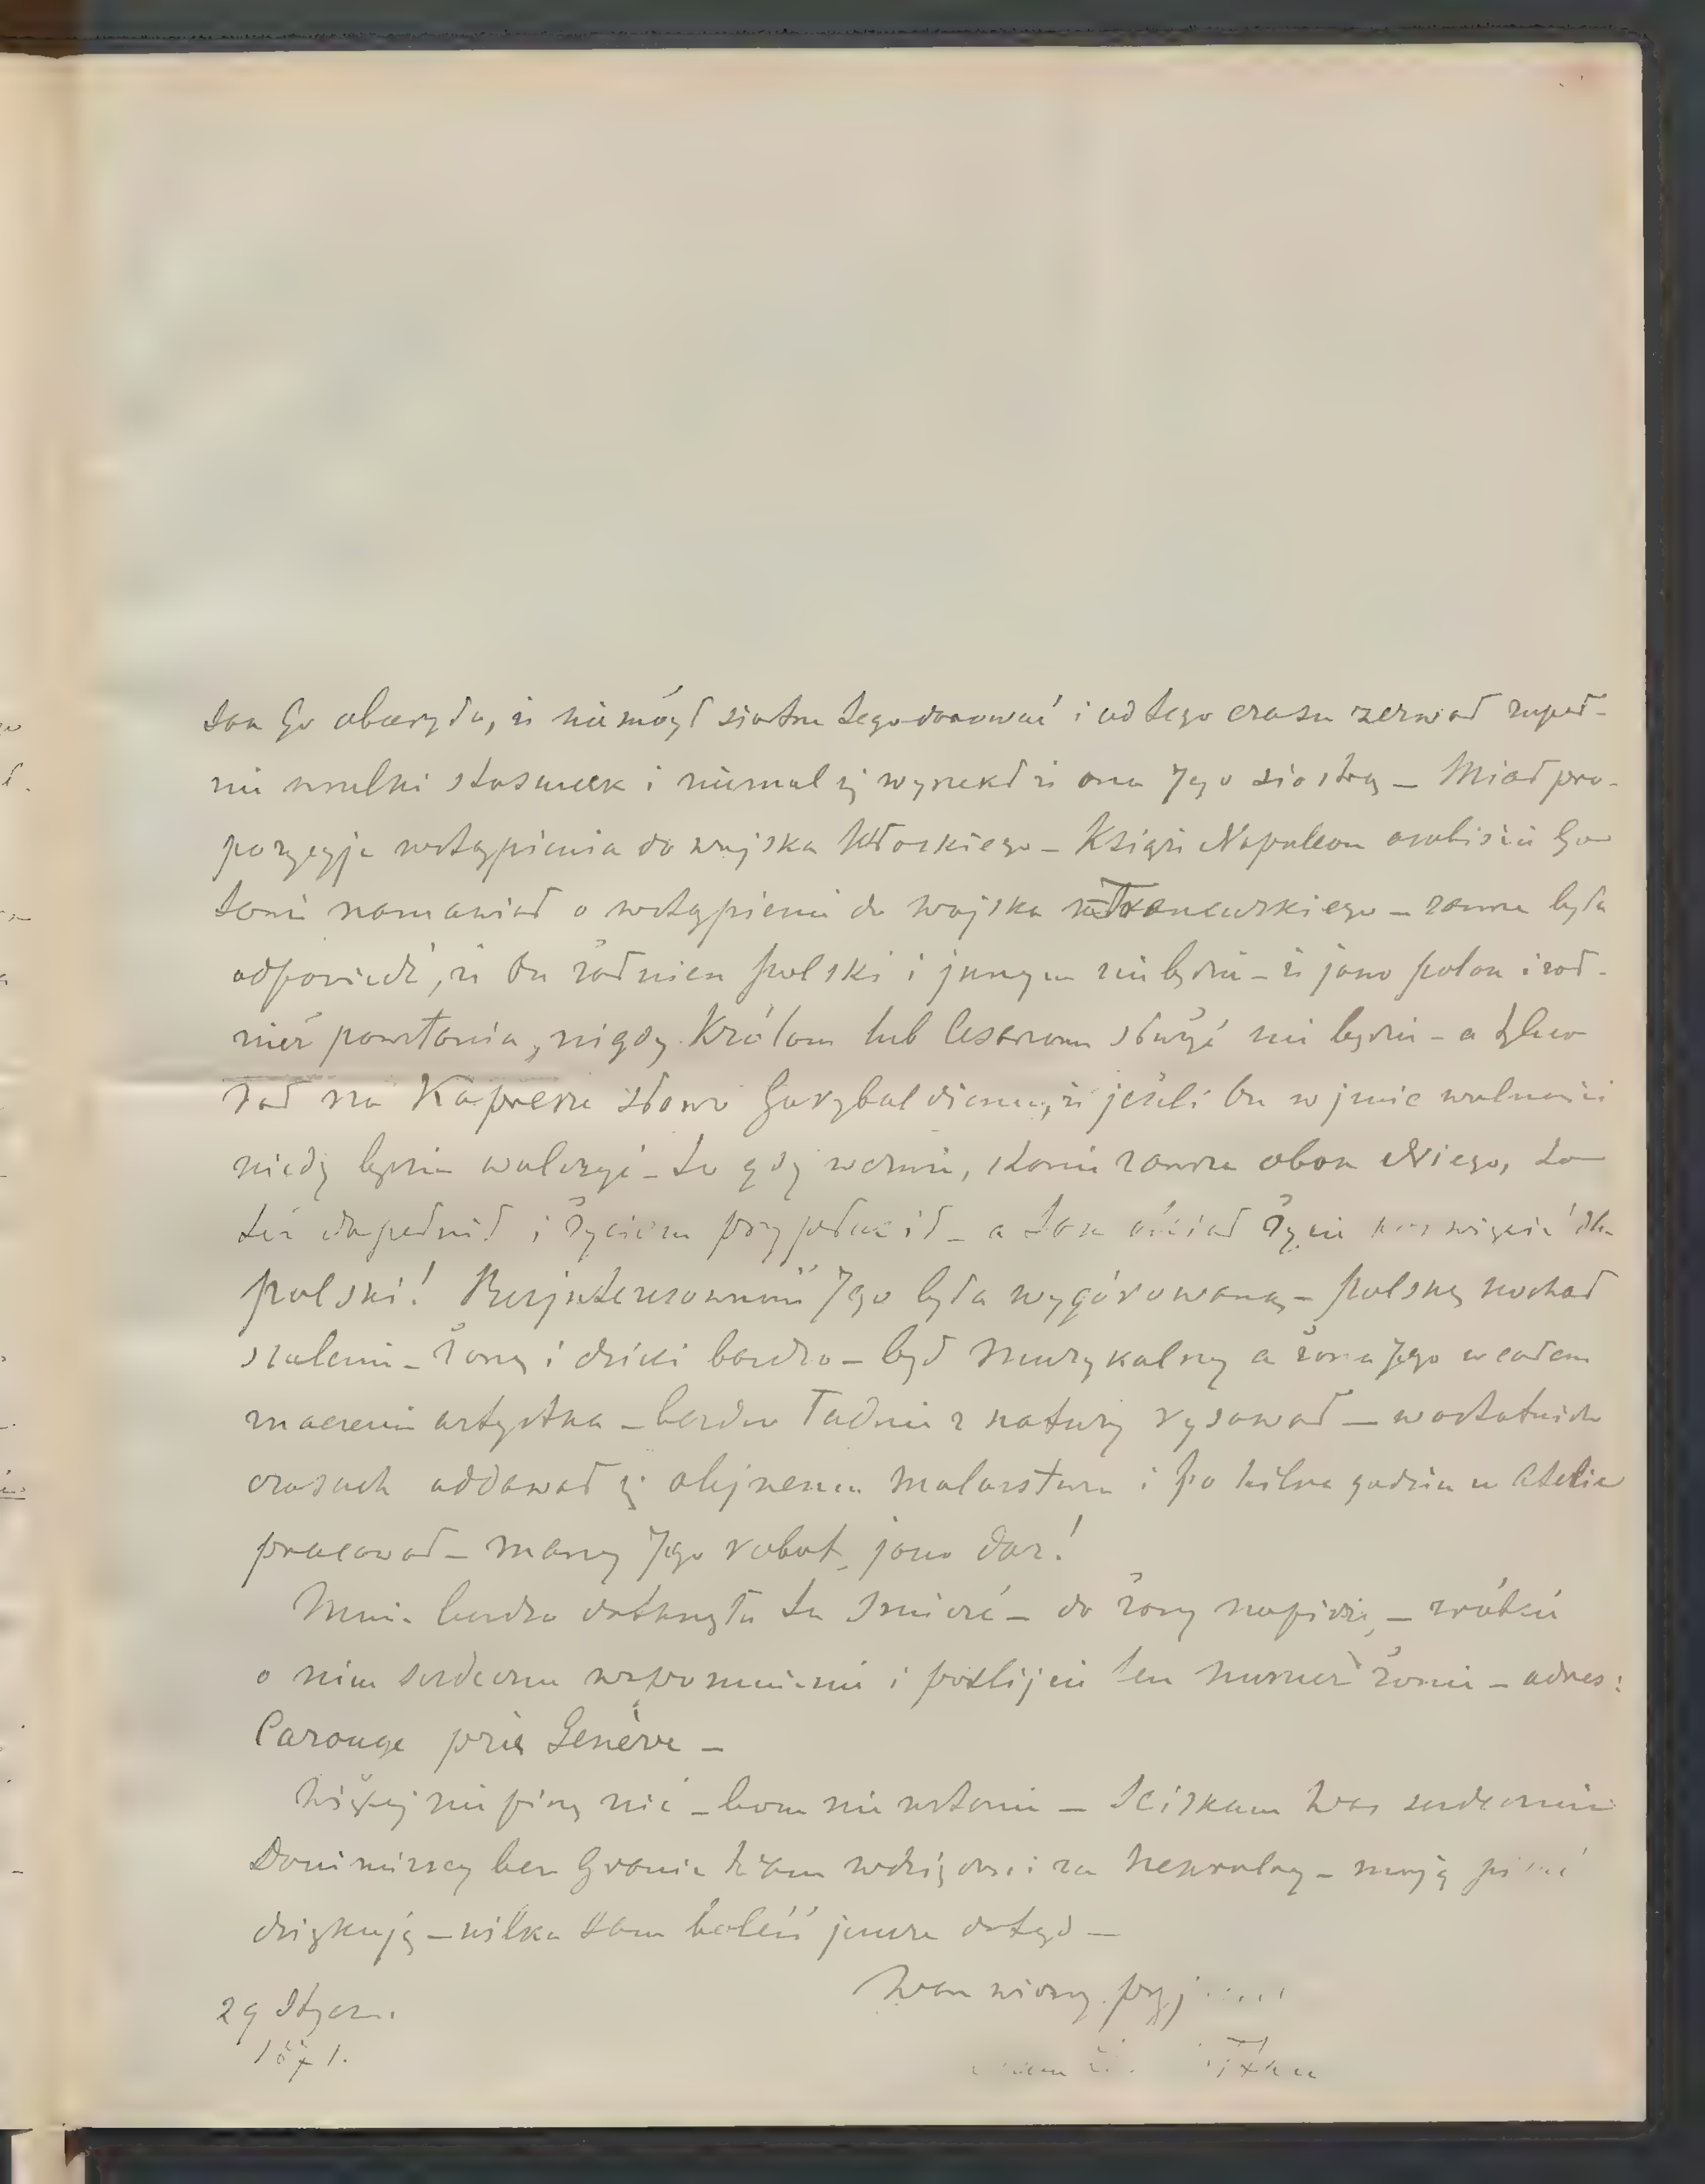 tak Go oburzyło, iż nie mógł siostrze tego darować i od tego czasu zerwał zupeł-
nie wszelki stosunek i niemal się wyrzekł iż ona Jego siostrą – Miał pro-
pozycyje wstąpienia do wojska Włoskiego – Książe Napoleon osobiście Go
namawiał o wstąpienie do wojska francuskiego – zawsze była
odpowiedź, iż On żołnierz polski i innym nie będzie – iż jako polak i żoł-
nierz powstania, nigdy Królom lub Cesarzom służyć nie będzie – a tylko
dał na Kaprerze słowo Garybaldiemu, iż jeżeli On w imie wolności
kiedy będzie walczyć – to gdy wezwie, stanie zawsze obok Niego, to
też dopełnił i życiem przypłacił – a tak chciał życie poświęcić dla
polski! Bezinteresowność Jego była wygórowaną – polskę kochał
szalenie – żonę i dzieci bardzo – był muzykalny a żona Jego w całem
znaczeniu artystka – bardzo ładnie z natury rysował – w ostatnich
czasach oddawał się olejnemu malarstwu i po kilka godzin w Atelie
pracował – mamy Jego robotę jako dar!
Mnie bardzo dotknęła ta śmierć – do żony napiszę, – zróbcie
o nim serdeczne wspomnienie i poślijcie ten numer żonie – adres:
Carouge près Genève –
Więcej nie piszę nic – bom nie w stanie – Ściskam Was serdecznie
bez Granic Wam wdzięczni za – moją
dziękuję –
29 Stycz.
1871.
Wasz wierny